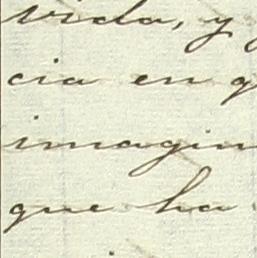 vida, y
cia en q
imagin
que ha